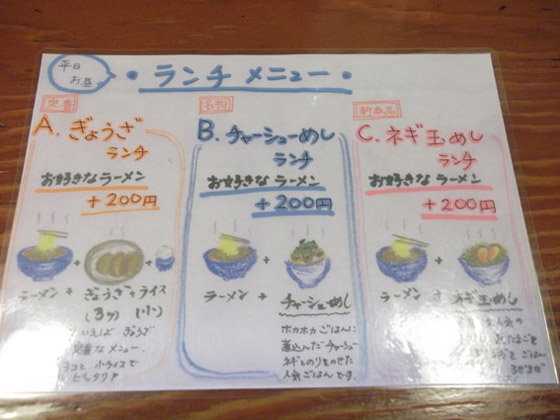 平日
お昼
・ランチ メニュー・
定番
A. ぎょうざ
ランチ
お好きなラーメン
+200円
+
+
ラーメン + ぎょうざ + ライス
(3ヶ) (小)
いえば ぎょうざ
定番なメニュー。
3コと 小ライスで
ピッタリ!
名物
B. チャーシューめし
ランチ
お好きなラーメン
+200円
+
ラーメン + チャーシューめし
ホカホカごはんに
煮込んだチャーシュー
ネギとのりをのせた
人気ごはんです。
新商品
C. ネギ玉めし
ランチ
お好きなラーメン
+200円
+
ラーメン + ネギ玉めし
人気の
たまごと
ごはん
まぜまぜ